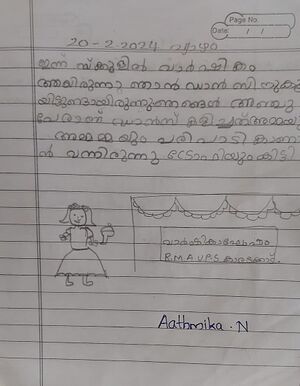 Page No.
Date: / /
20-2-2024 വ്യാഴം
ഇന്ന് സ്കൂളിൽ വാർഷികം
ആയിരുന്നു ഞാൻ ഡാൻസിനു
യിട്ടുണ്ടായിരുന്നു ഞങ്ങൾ അഞ്ചു
പേരാണ് ഡാൻസ് കളിച്ചത് അമ്മയു
അമ്മമ്മയും പരിപാടി കാണാ
ൻ വന്നിരുന്നു. ട്രോഫിയും കിട്ടി.
വാർഷികാഘോഷം
R.M.A.U.P.S
Aathmika.N